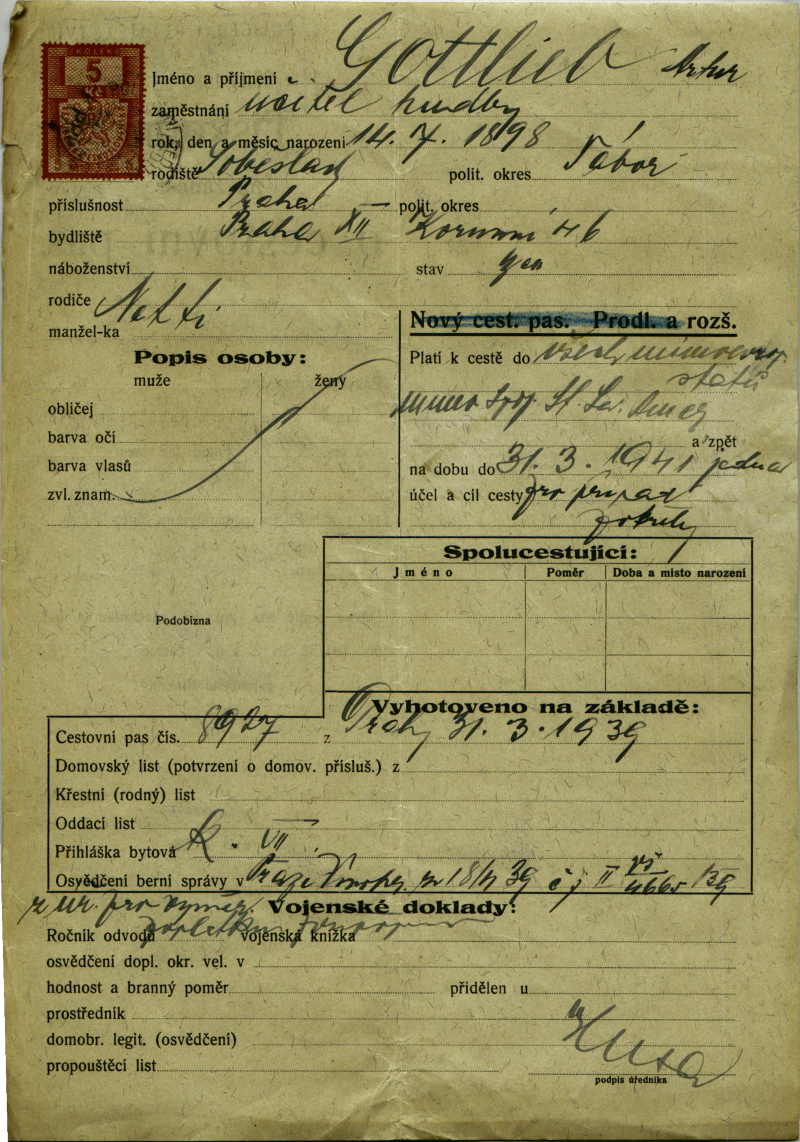 KOLEK
5
Jméno a příjmení Gottlieb Artur
zaměstnání učitel hudby
rok, den a měsíc narození 14. 7. 1898
rodiště Soběslav polit. okres Tábor
příslušnost Praha — polit. okres
bydliště Praha XII Korunní 46
náboženství stav
rodiče
manžel-ka Netti
Nový cest. pas. Prodl. a rozš.
Popis osoby:
muže ženy
obličej
barva očí
barva vlasů
zvl. znam.
Platí k cestě do všech mimoevrop.
států
mimo
a zpět
na dobu do 31. 3. 1941
účel a cíl cesty pro případ
potřeby
Spolucestující:
Jméno Poměr Doba a místo narození
Podobizna
Vyhotoveno na základě:
Cestovní pas čís. 8927 z Prahy 31. 3. 1939
Domovský list (potvrzení o domov. přísluš.) z
Křestní (rodný) list
Oddací list
Přihláška bytová K. VII
Osvědčení berní správy v Praze 39 č j II
pro
Vojenské doklady:
Ročník odvodu vojenská knížka
osvědčení dopl. okr. vel. v
hodnost a branný poměr přidělen u
prostředník
domobr. legit. (osvědčení)
propouštěcí list
podpis úředníka